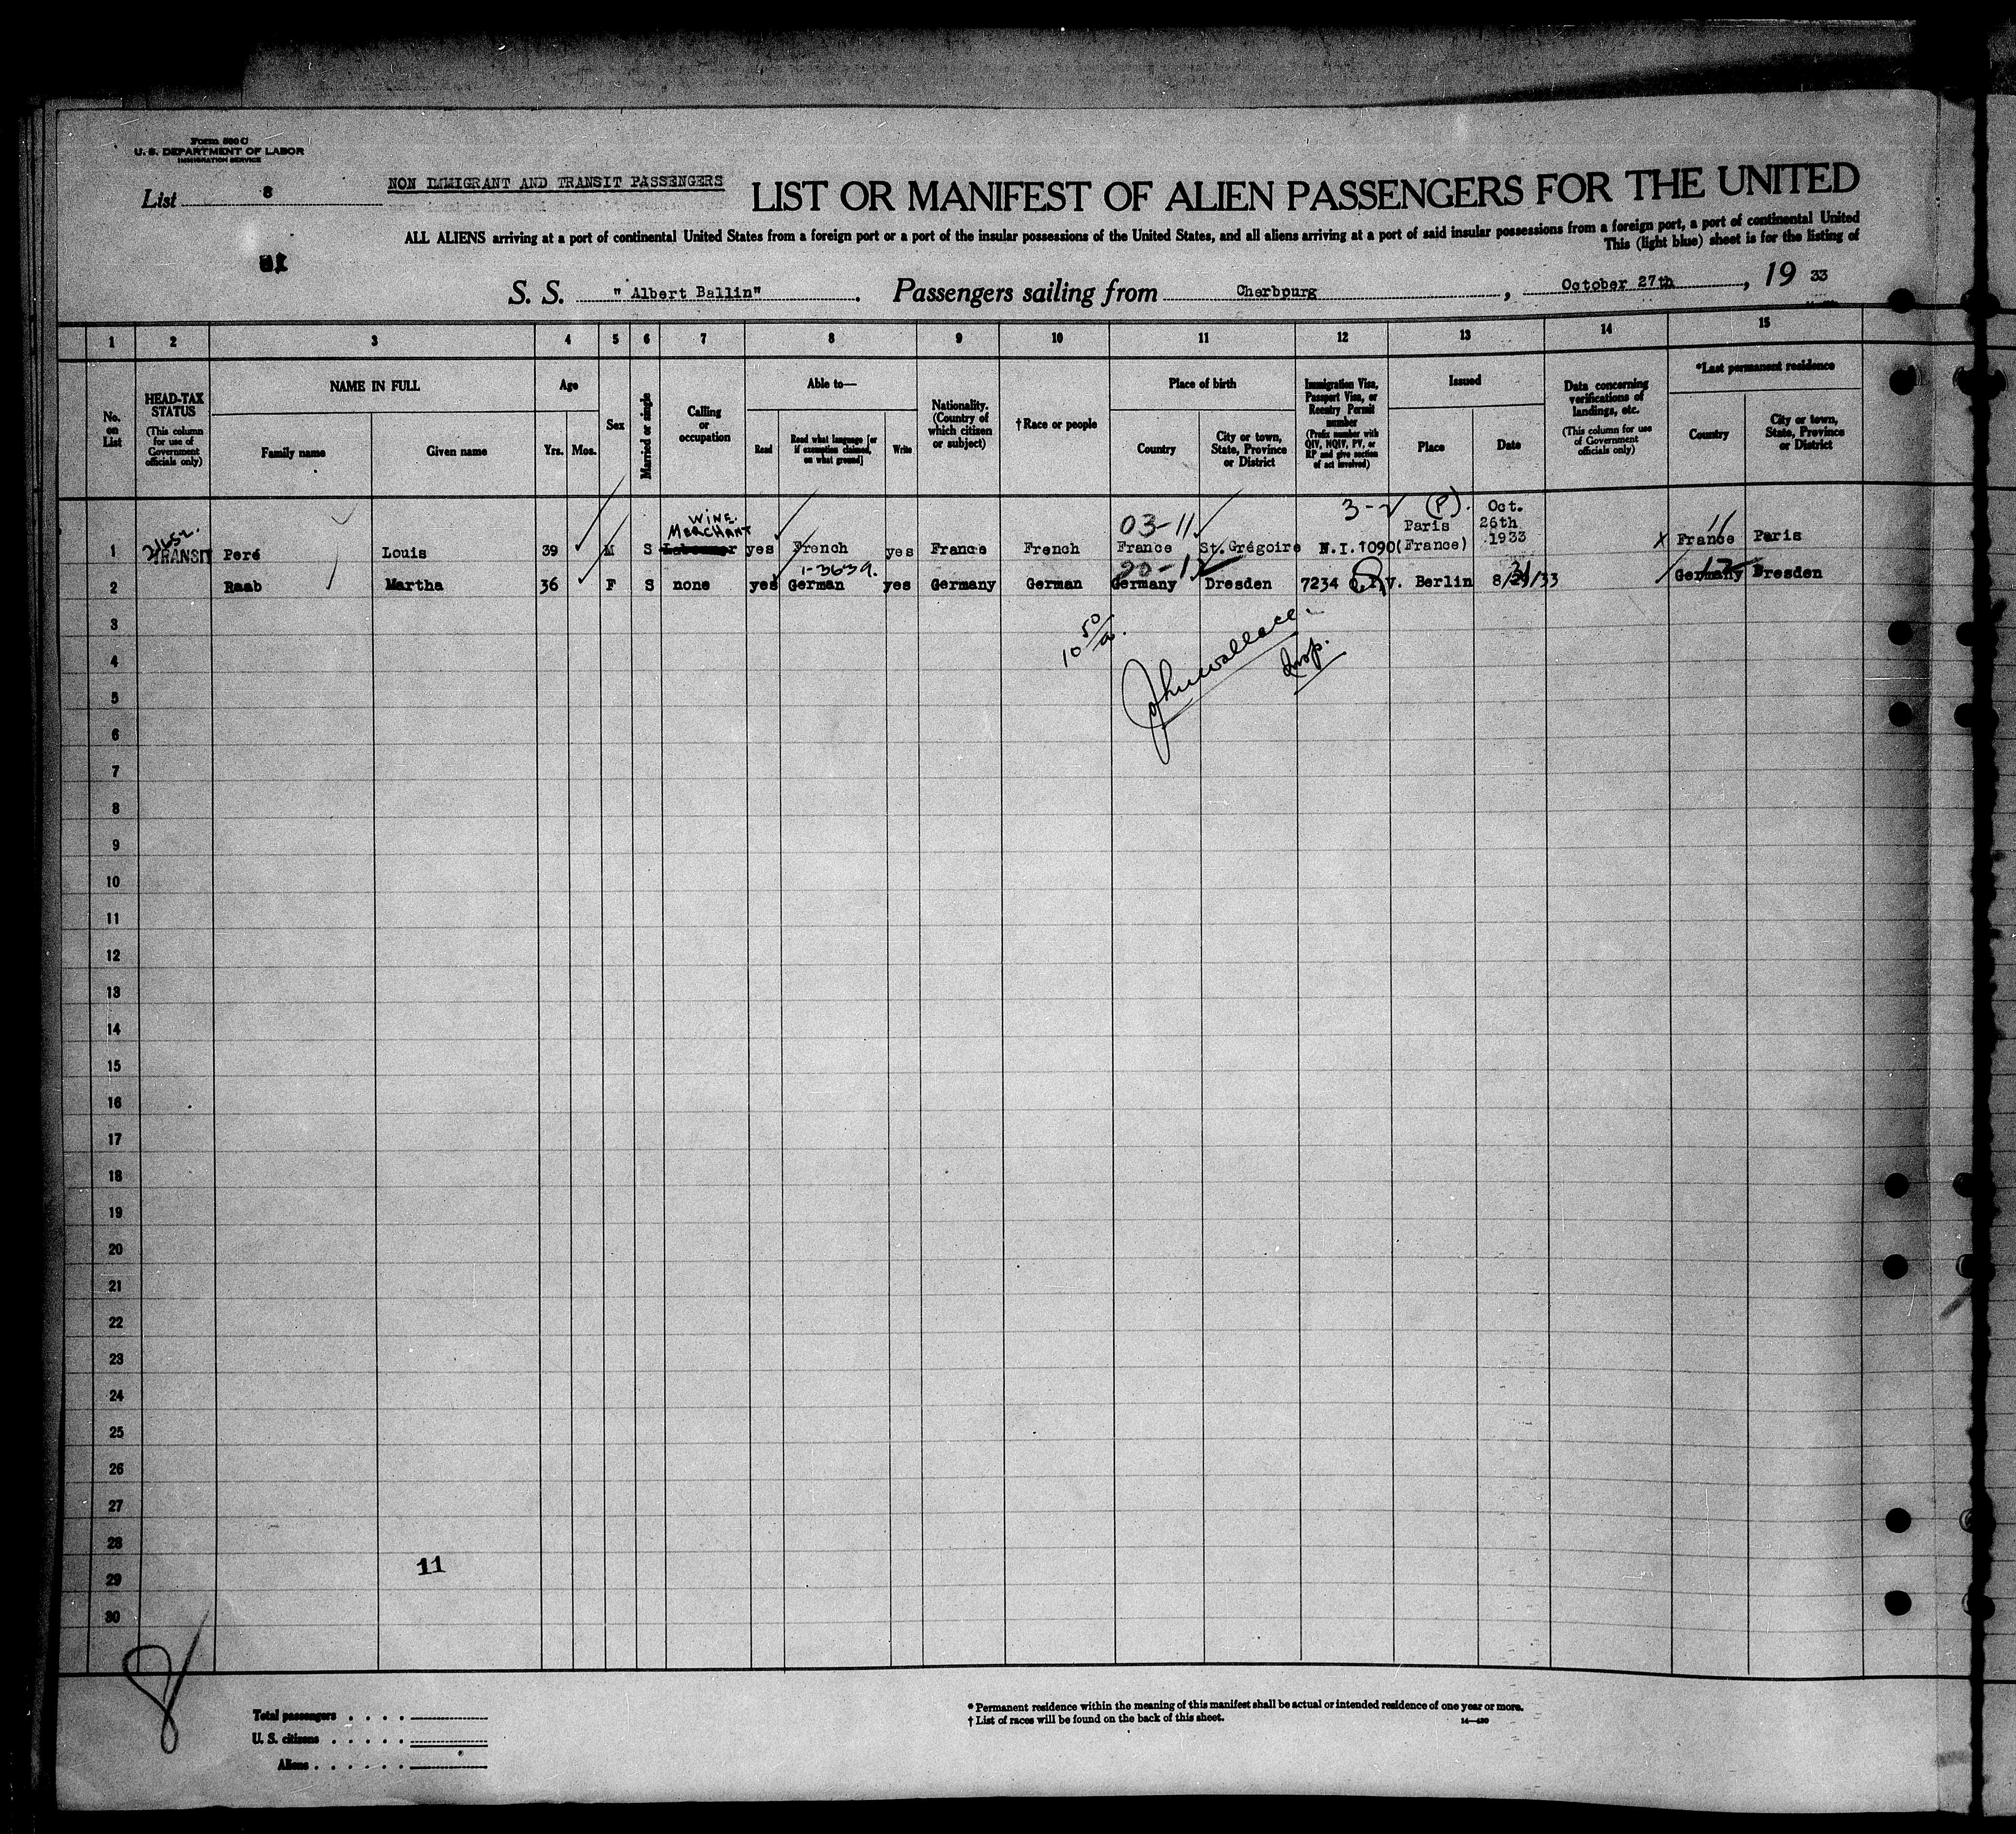 Form 500 C
U. S. DEPARTMENT OF LABOR
IMMIGRATION SERVICE
List 8
NON IMMIGRANT AND TRANSIT PASSENGERS
LIST OR MANIFEST OF ALIEN PASSENGERS FOR THE UNITED
ALL ALIENS arriving at a port of continental United States from a foreign port or a port of the insular possessions of the United States, and all aliens arriving at a port of said insular possessions from a foreign port, a port of continental United
This (light blue) sheet is for the listing of
S. S. "Albert Ballin". Passengers sailing from Cherbourg, October 27th, 19 33
1 2 3 4 5 6 7 8 9 10 11 12 13 14 15
No. on List
HEAD-TAX STATUS
(This column for use of Government officials only)
NAME IN FULL
Family name
Given name
Age
Yrs.
Mos.
Sex
Married or single
Calling or occupation
Able to—
Read
Read what language [or if exemption claimed, on what ground]
Write
Nationality. (Country of which citizen or subject)
†Race or people
Place of birth
Country
City or town, State, Province or District
Immigration Visa, Passport Visa, or Reentry Permit number
(Prefix number with QIV, NQIV, PV, or RP and give section of act involved)
Issued
Place
Date
Data concerning verifications of landings, etc.
(This column for use of Government officials only)
*Last permanent residence
Country
City or town, State, Province or District
WINE MERCHANT
03-11
3-2 (P).
Oct.
11
1 TRANSIT Peré Louis 39 M S Labourer yes French yes France French France St. Grégoire N.I.1090 Paris (France) 26th 1933 X France Paris
1-3639.
20-12
12
2 Raab Martha 36 F S none yes German yes Germany German Germany Dresden 7234 Q.I.V. Berlin 8/31/33 Germany Dresden
3
10 50/a.
4
John Wallace
Insp.
5
6
7
8
9
10
11
12
13
14
15
16
17
18
19
20
21
22
23
24
25
26
27
28
11
29
30
8
Total passengers
U. S. citizens
Aliens
* Permanent residence within the meaning of this manifest shall be actual or intended residence of one year or more.
† List of races will be found on the back of this sheet.
14—430